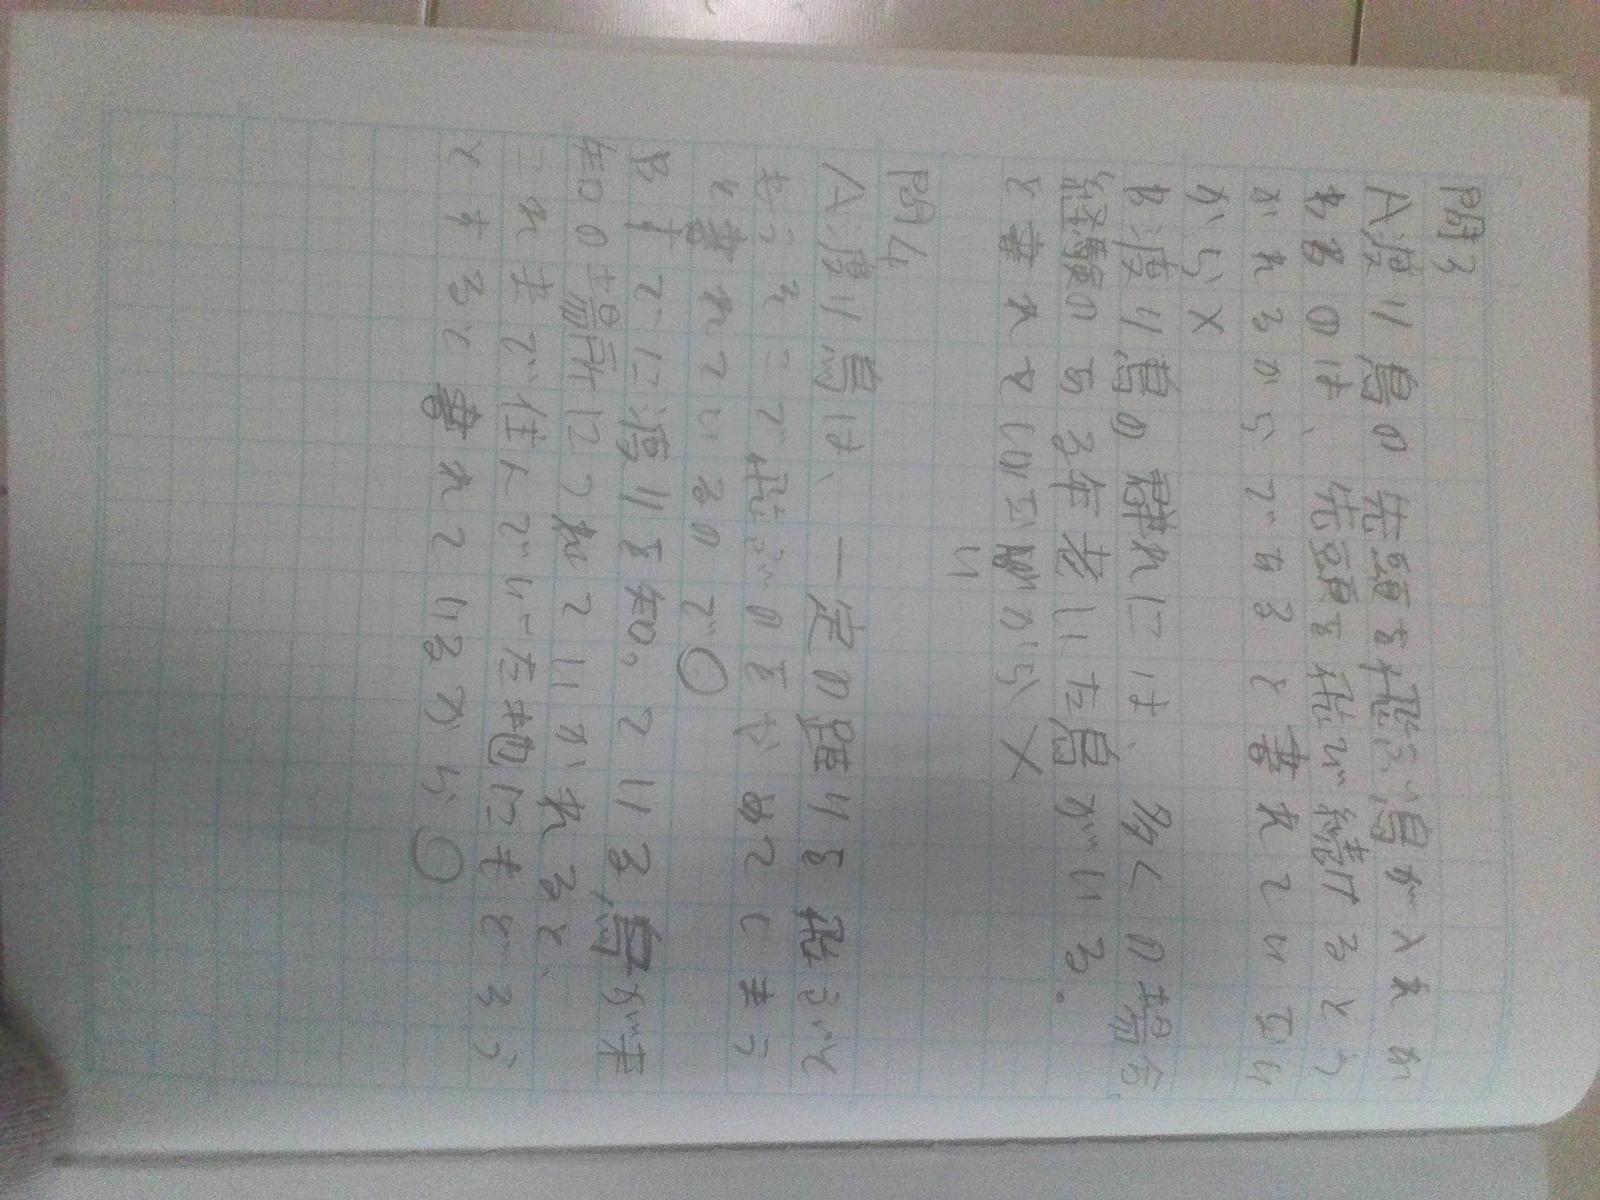 問3
A渡り鳥の先頭を飛ぶ鳥が入れか
わるのは、先頭を飛び続けるとつ
かれるからであると書れてい
ないから×
B渡り鳥の群れには、多くの場合、
経験のある年老いた鳥がいる。
と書れていないから×
問4
A渡り鳥は、一定の距りを飛ぶと
もうそこで飛ぶのをやめてしまう
と書れているので○
Bすでに渡りを知っている鳥が未
知の場所に つれていかれると、
これまで住んでいた土地にもどろう
とすると書れているから○